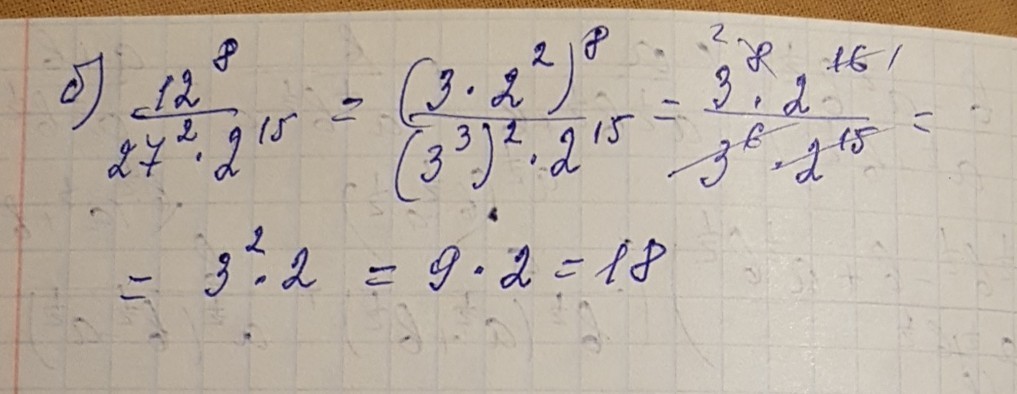 б) 12^8 / (27^2 · 2^15) = (3 · 2^2)^8 / ((3^3)^2 · 2^15) = 3^8 · 2^16 / (3^6 · 2^15) =
= 3^2 · 2 = 9 · 2 = 18